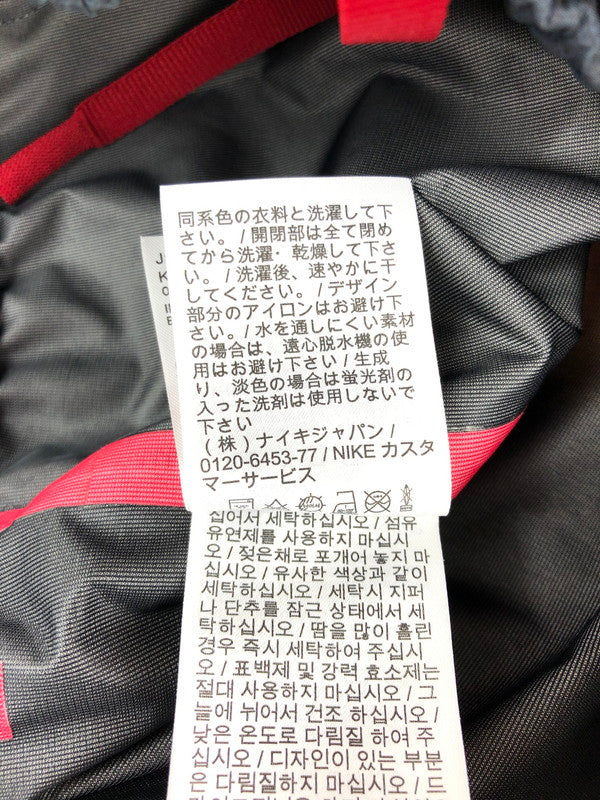 同系色の衣料と洗濯して下
さい。/ 開閉部は全て閉め
てから洗濯・乾燥して下さ
い。/ 洗濯後、速やかに干
してください。/ デザイン
部分のアイロンはお避け下
さい。/ 水を通しにくい素材
の場合は、遠心脱水機の使
用はお避け下さい / 生成
り、淡色の場合は蛍光剤の
入った洗剤は使用しないで
下さい
(株) ナイキジャパン /
0120-6453-77 / NIKE カスタ
マーサービス
집어서 세탁하십시오 / 섬유
유연제를 사용하지 마십시
오 / 젖은채로 포개어 놓지 마
십시오 / 유사한 색상과 같이
세탁하십시오 / 세탁시 지퍼
나 단추를 잠근 상태에서 세
탁하십시오 / 땀을 많이 흘린
경우 즉시 세탁하여 주십시
오 / 표백제 및 강력 효소제는
절대 사용하지 마십시오 / 그
늘에 뉘어서 건조 하십시오 /
낮은 온도로 다림질 하여 주
십시오 / 디자인이 있는 부분
은 다림질하지 마십시오 / 드